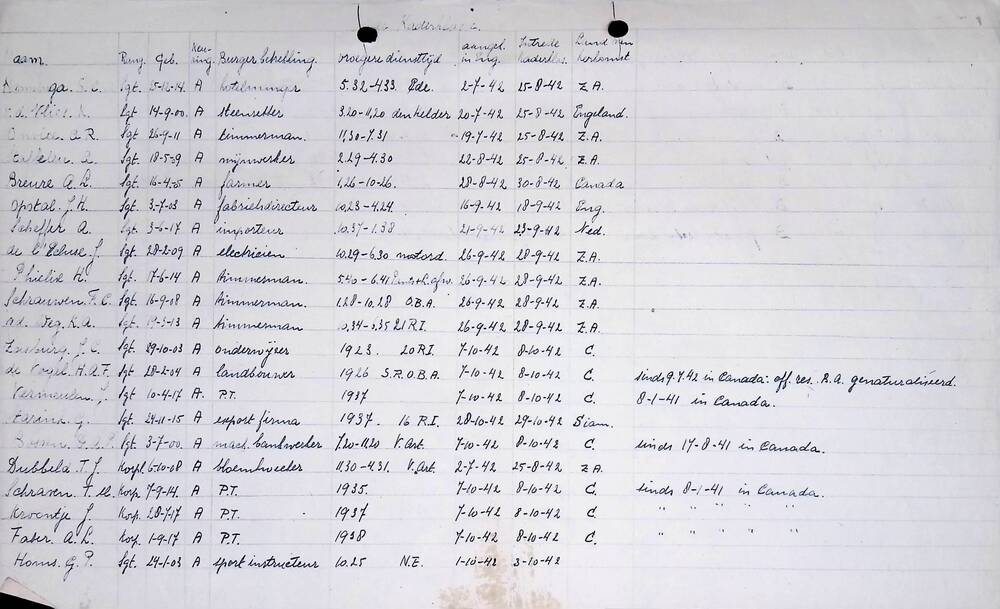 Kaderklasse.
aam. Rang. Geb. Keuring. Burger betrekking vroegere diensttijd aangek. in Eng. Intrede kaderkl. Land van herkomst
Sgt. 25-12-14. A hotelmanager 5.32-4.33. Ede. 2-7-42 25-8-42 Z.A.
v.d. Vlies. K. Sgt 14-9-00. A steenzetter 3.20-11.20 den helder 20-7-42 25-8-42 Engeland.
A.R. Sgt 26-9-11 A timmerman. 11.30-7.31 19-7-42 25-8-42 Z.A.
Sgt. 18-5-9 A mijnwerker 2.29-4.30 22-8-42 25-8-42 Z.A.
Breure A.L. Sgt. 16-4-05 A farmer 1.26-10-26. 28-8-42 30-8-42 Canada
Opstal. J.H. Sgt. 3-7-03 A fabrieksdirecteur 10.23-4.24. 16-9-42 18-9-42 Eng.
Scheffer A. Sgt. 3-6-17 A importeur 10.37-1.38 21-9-42 23-9-42 Ned.
de l'Ecluse J. Sgt. 28-2-09 A electricien 10.29-6.30 motord. 26-9-42 28-9-42 Z.A.
Philix H. Sgt. 17-6-14 A timmerman. 5.40-6.41 26-9-42 28-9-42 Z.A.
Schrauwen. F.C. Sgt. 16-9-08 A timmerman. 1.28-10.28 O.B.A. 26-9-42 28-9-42 Z.A.
vd. Weg. K.A. Sgt 19-3-13 A timmerman 10.34-5.35 21 R.I. 26-9-42 28-9-42 Z.A.
J.C. Sgt. 29-10-03 A onderwijzer 1923. 20 R.I. 7-10-42 8-10-42 C.
de Vogel. H.A.F. Sgt 28-2-04 A landbouwer 1926 S.R.O.B.A. 7-10-42 8-10-42 C. sinds 9.7.42 in Canada: off. res. R.A. genaturaliseerd.
Vermeulen J. Sgt 10-4-17 A. P.T. 1937 7-10-42 8-10-42 C. 8-1-41 in Canada.
G. Sgt. 24-11-15 A export firma 1937. 16 R.I. 28-10-42 29-10-42 Siam.
Sgt. 3-7-00. A mach. bankwerker 7.20-11.20 V. Art. 7-10-42 8-10-42 C. sinds 17-8-41 in Canada.
Dubbeld T.J. Korpl. 6-10-08 A bloemkweeker 11.30-4.31. V. Art 2-7-42 25-8-42 Z.A.
Schraven. T.M. Korp 7-9-14. A P.T. 1935. 7-10-42 8-10-42 C. sinds 8-1-41 in Canada.
Kroontje J. Korp. 28-7-17 A P.T. 1937 7-10-42 8-10-42 C. " " " " "
Faber. A.L. Korp. 1-9-17 A P.T. 1938 7-10-42 8-10-42 C. " " " " "
Homs. G.P. Sgt. 24-1-03 A sport instructeur 10.25 N.E. 1-10-42 3-10-42